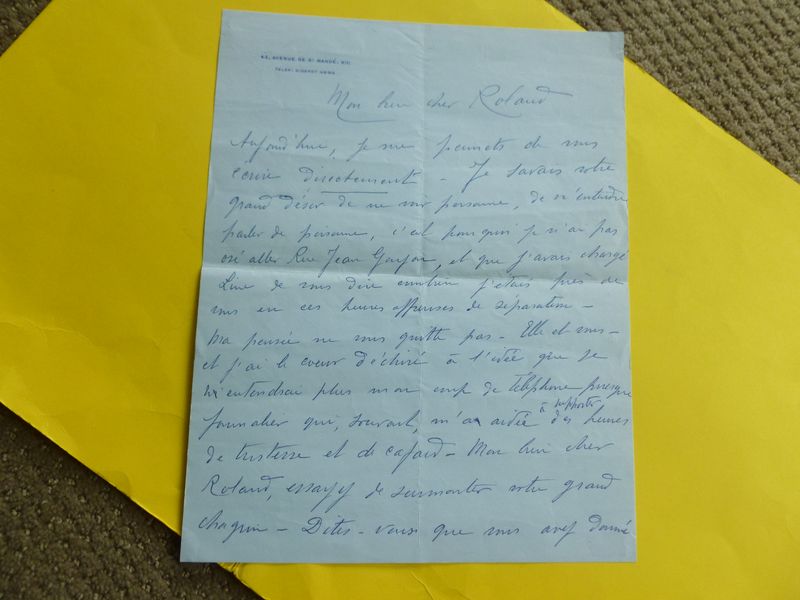 43, AVENUE DE ST MANDÉ, XII
TÉLÉP: DIDEROT
Mon bien cher Roland
Aujourd'hui, je me permets de vous
écrire directement - Je savais votre
grand désir de ne voir personne, de n'entendre
parler de personne, c'est pourquoi je n'ai pas
osé aller Rue Jean Goujon, et que j'avais chargé
Line de vous dire combien j'étais près de
vous en ces heures affreuses de séparation -
Ma pensée ne vous quitte pas - Elle et vous -
et j'ai le coeur déchiré à l'idée que je
n'entendrai plus mon coup de téléphone presque
journalier qui, souvent, m'a aidée à supporter des heures
de tristesse et de cafard - Mon bien cher
Roland, essayez de surmonter votre grand
chagrin - Dites-vous que vous avez donné